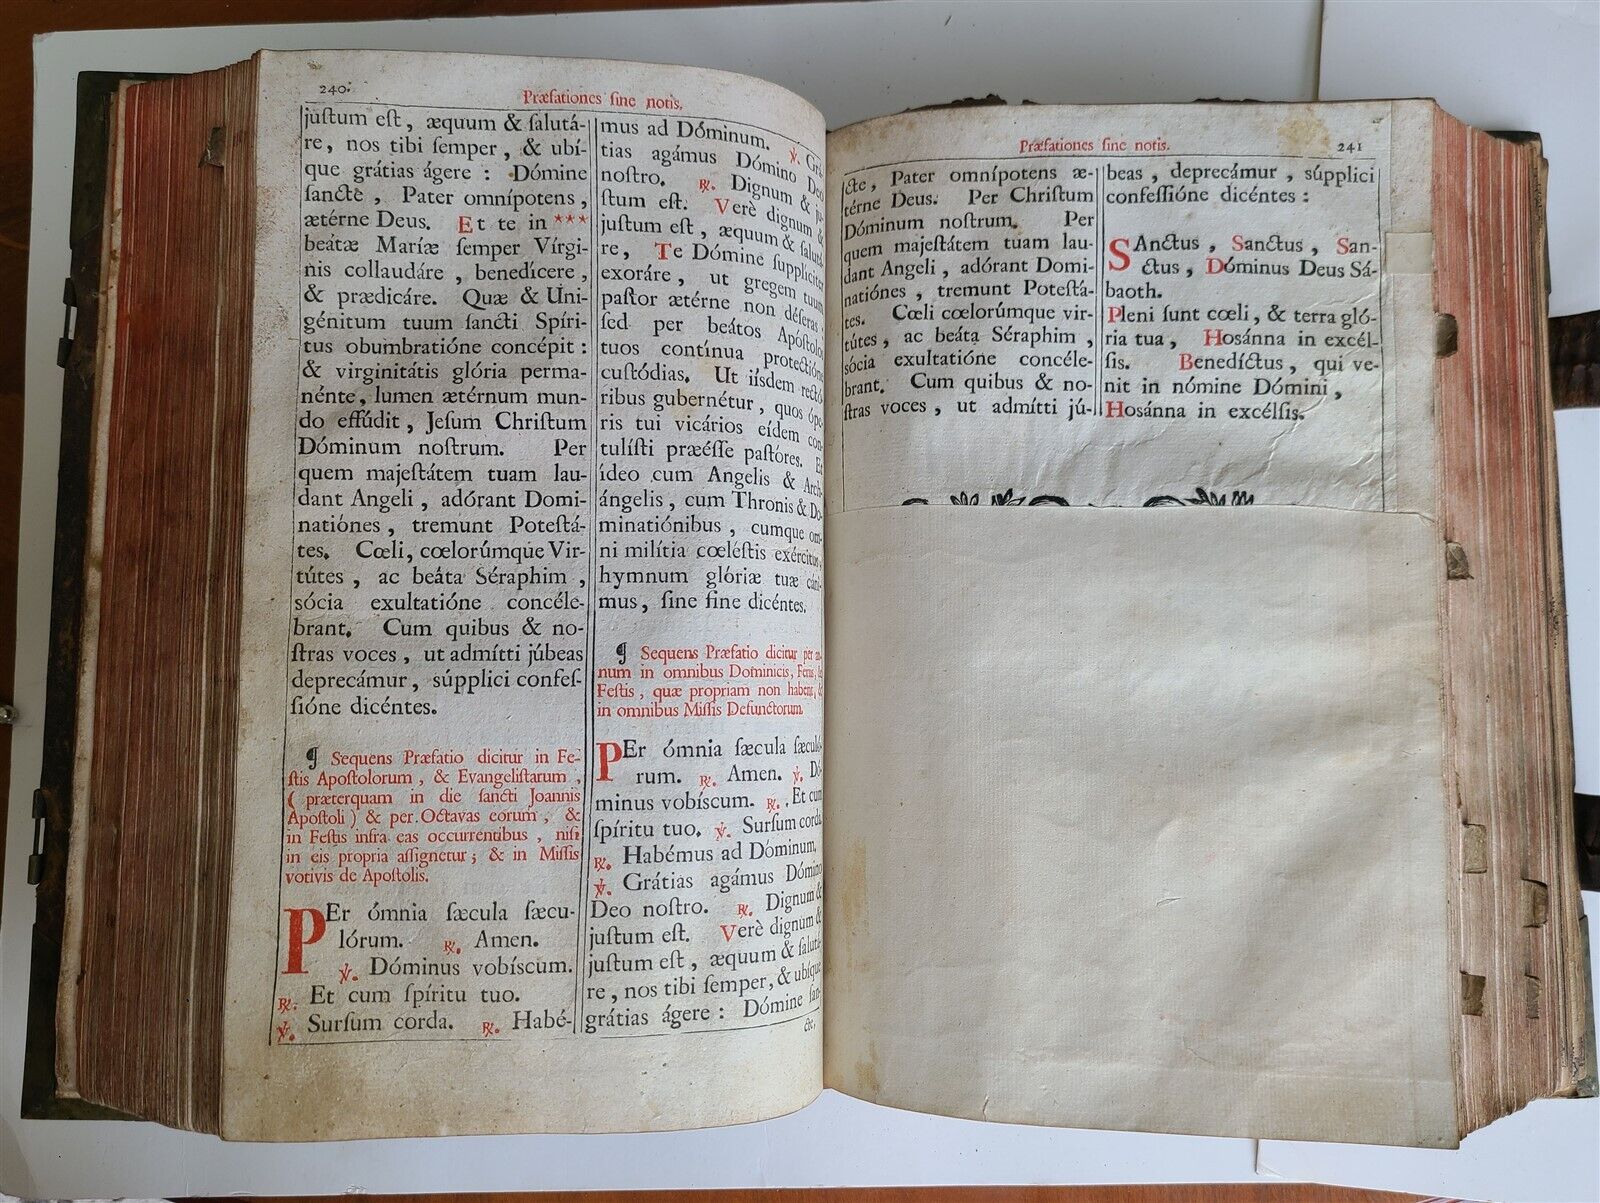 240.
Præfationes ſine notis.
juſtum eſt, æquum & ſalutá-
re, nos tibi ſemper, & ubí-
que grátias ágere : Dómine
ſancte, Pater omnípotens,
ætérne Deus. Et te in ***
beátæ Maríæ ſemper Vírgi-
nis collaudáre, benedícere,
& prædicáre. Quæ & Uni-
génitum tuum ſancti Spíri-
tus obumbratióne concépit :
& virginitátis glória perma-
nénte, lumen ætérnum mun-
do effúdit, Jeſum Chriſtum
Dóminum noſtrum. Per
quem majeſtátem tuam lau-
dant Angeli, adórant Domi-
natiónes, tremunt Poteſtá-
tes. Cœli, cœlorúmque Vir-
tútes, ac beáta Séraphim,
sócia exultatióne concéle-
brant. Cum quibus & no-
ſtras voces, ut admítti júbeas
deprecámur, súpplici confeſ-
ſióne dicéntes.
¶ Sequens Præfatio dicitur in Fe-
ſtis Apoſtolorum, & Evangeliſtarum,
( præterquam in die ſancti Joannis
Apoſtoli ) & per Octavas eorum, &
in Feſtis infra eas occurrentibus, niſi
in eis propria aſſignetur; & in Miſſis
votivis de Apoſtolis.
PEr ómnia ſæcula ſæcu-
lórum. ℟. Amen.
℣. Dóminus vobíscum.
℟. Et cum ſpíritu tuo.
℣. Surſum corda. ℟. Habé-
mus ad Dóminum. ℣. Grá-
tias agámus Dómino Deo
noſtro. ℟. Dignum & ju-
ſtum eſt. Verè dignum &
juſtum eſt, æquum & ſalutá-
re, Te Dómine ſupplíciter
exoráre, ut gregem tuum
paſtor ætérne non déſeras:
ſed per beátos Apóſtolos
tuos contínua protectióne
cuſtódias. Ut iíſdem rectó-
ribus gubernétur, quos ópe-
ris tui vicários eídem con-
tulíſti præéſſe paſtóres. Et
ídeo cum Angelis & Arch-
ángelis, cum Thronis & Do-
minatiónibus, cumque om-
ni milítia cœléſtis exércitus,
hymnum glóriæ tuæ cáni-
mus, ſine fine dicéntes.
¶ Sequens Præfatio dicitur per an-
num in omnibus Dominicis, Feriis, &
Feſtis, quæ propriam non habent, &
in omnibus Miſſis Defunctorum.
PEr ómnia ſæcula ſæculó-
rum. ℟. Amen. ℣. Dó-
minus vobíscum. ℟. Et cum
ſpíritu tuo. ℣. Surſum corda.
℟. Habémus ad Dóminum.
℣. Grátias agámus Dómino
Deo noſtro. ℟. Dignum &
juſtum eſt. Verè dignum &
juſtum eſt, æquum & ſalutá-
re, nos tibi ſemper, & ubíque
grátias ágere : Dómine ſan-
cte,
Præfationes ſine notis.
241
cte, Pater omnípotens æ-
térne Deus. Per Chriſtum
Dóminum noſtrum. Per
quem majeſtátem tuam lau-
dant Angeli, adórant Domi-
natiónes, tremunt Poteſtá-
tes. Cœli cœlorúmque vir-
tútes, ac beáta Séraphim,
sócia exultatióne concéle-
brant. Cum quibus & no-
ſtras voces, ut admítti jú-
beas, deprecámur, súpplici
confeſſióne dicéntes :
SAnctus, Sanctus, San-
ctus, Dóminus Deus Sá-
baoth.
Pleni ſunt cœli, & terra gló-
ria tua, Hosánna in excél-
ſis. Benedíctus, qui ve-
nit in nómine Dómini,
Hosánna in excélſis.